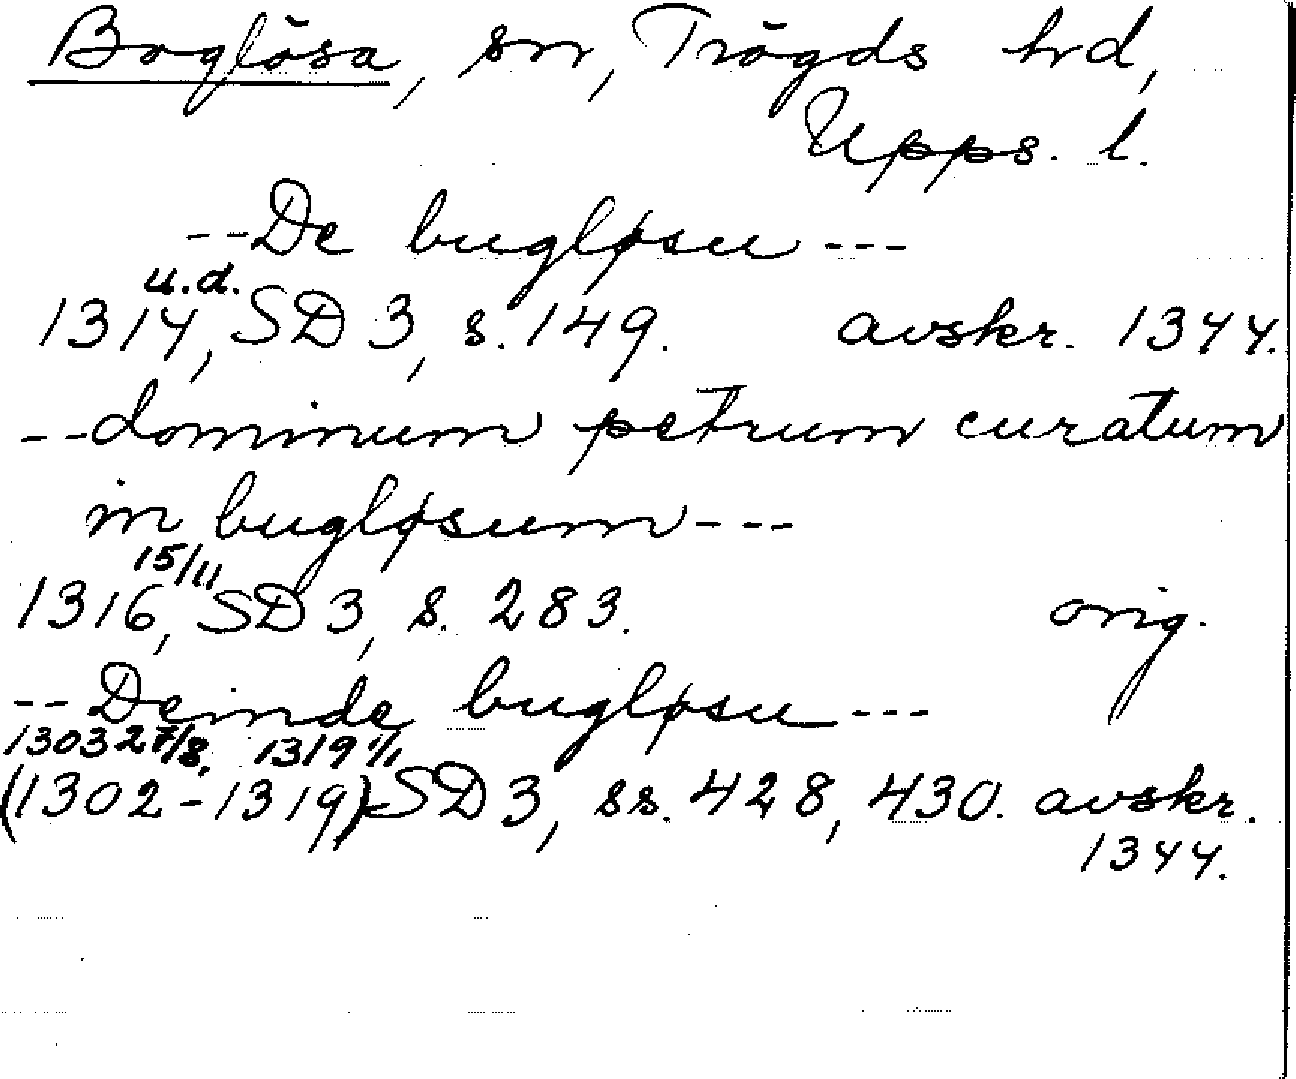 Boglösa, sn, Trögds hrd,
Upps. l.
--De bugløsu---
u.d.
1314, SD 3, s. 149. avskr. 1344.
--dominum petrum curatum
in bugløsum---
15/11
1316, SD 3, s. 283. orig.
--Deinde bugløsu---
1303 27/8, 1319 1/1
(1302-1319) SD 3, ss. 428, 430. avskr.
1344.